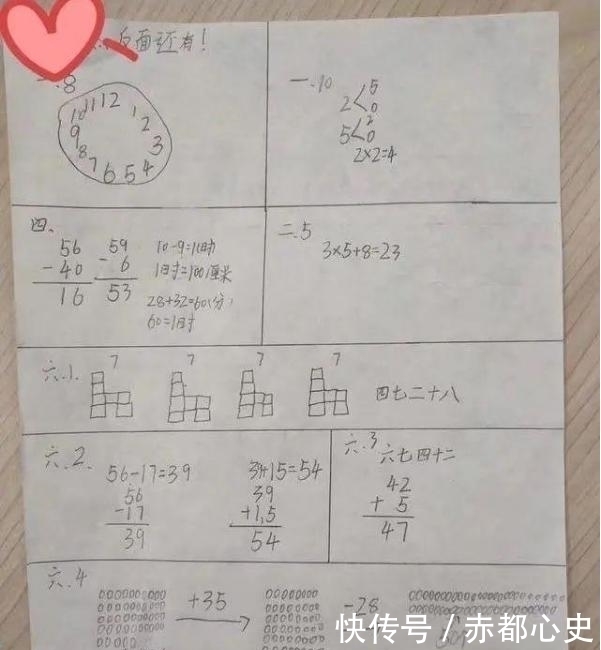 反面还有!
一.8
11 12 1
10 2
9 3
8 4
7 6 5
一.10
2<5
0
5<2
0
2×2=4
四、
56
-40
16
59
- 6
53
10-9=1(时)
1时=100厘米
28+32=60(分)
60=1时
二.5
3×5+8=23
六.1.
7 7 7 7
四七二十八
六.2.
56-17=39
56
-17
39
39+15=54
39
+15
54
六.3
六七四十二
42
+ 5
47
六.4
+35
-28
快传号 / 赤都心史